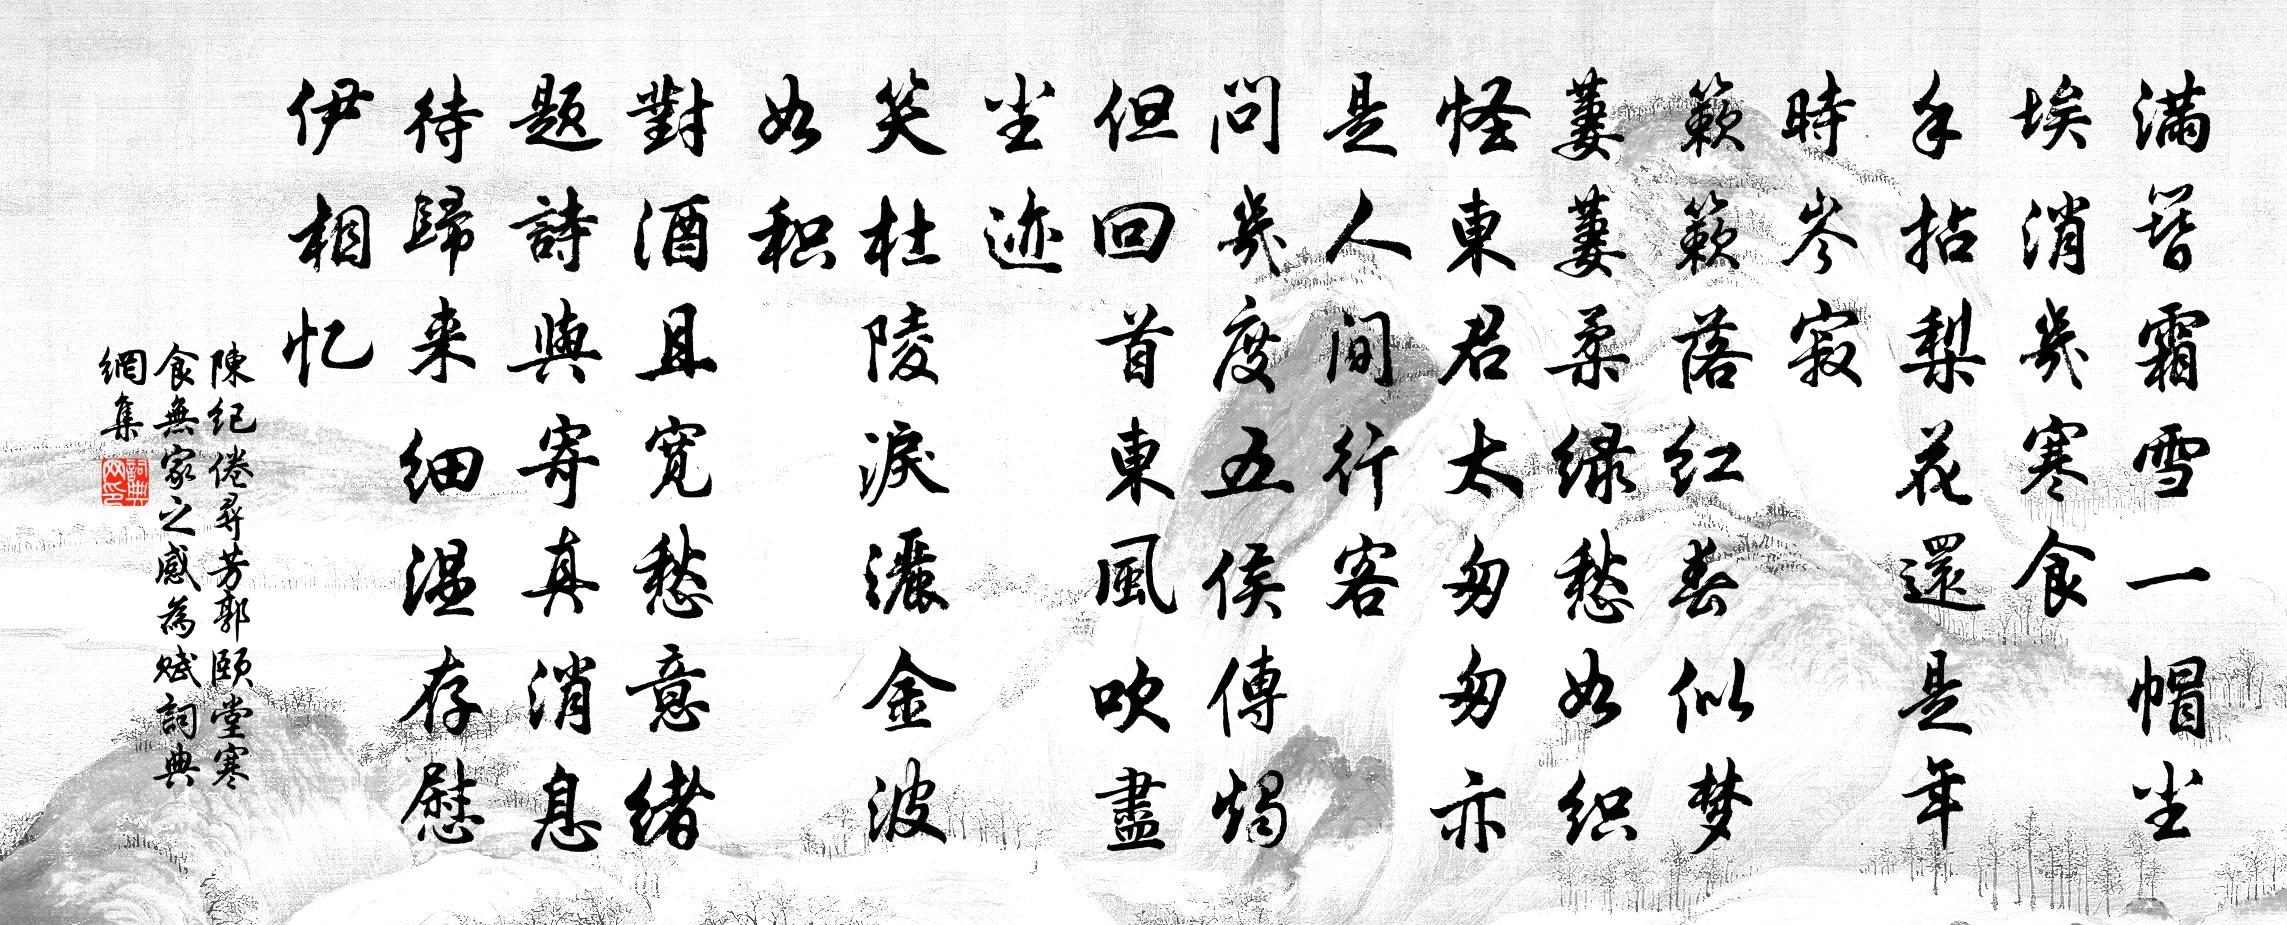 满簪霜雪一帽尘
埃消幾寒食
手拈梨花還是年
時岑寂
簌簌落红春似梦
萋萋柔绿愁如织
怪東君太匆匆亦
是人间行客
問幾度五侯傳燭
但回首東風吹盡
尘迹
笑杜陵淚灑金波
如积
對酒且宽愁意绪
题詩與寄真消息
待歸来细温存慰
伊相忆
陳纪倦尋芳郭颐堂寒
食無家之感為赋詞典
網集
詞典
网印